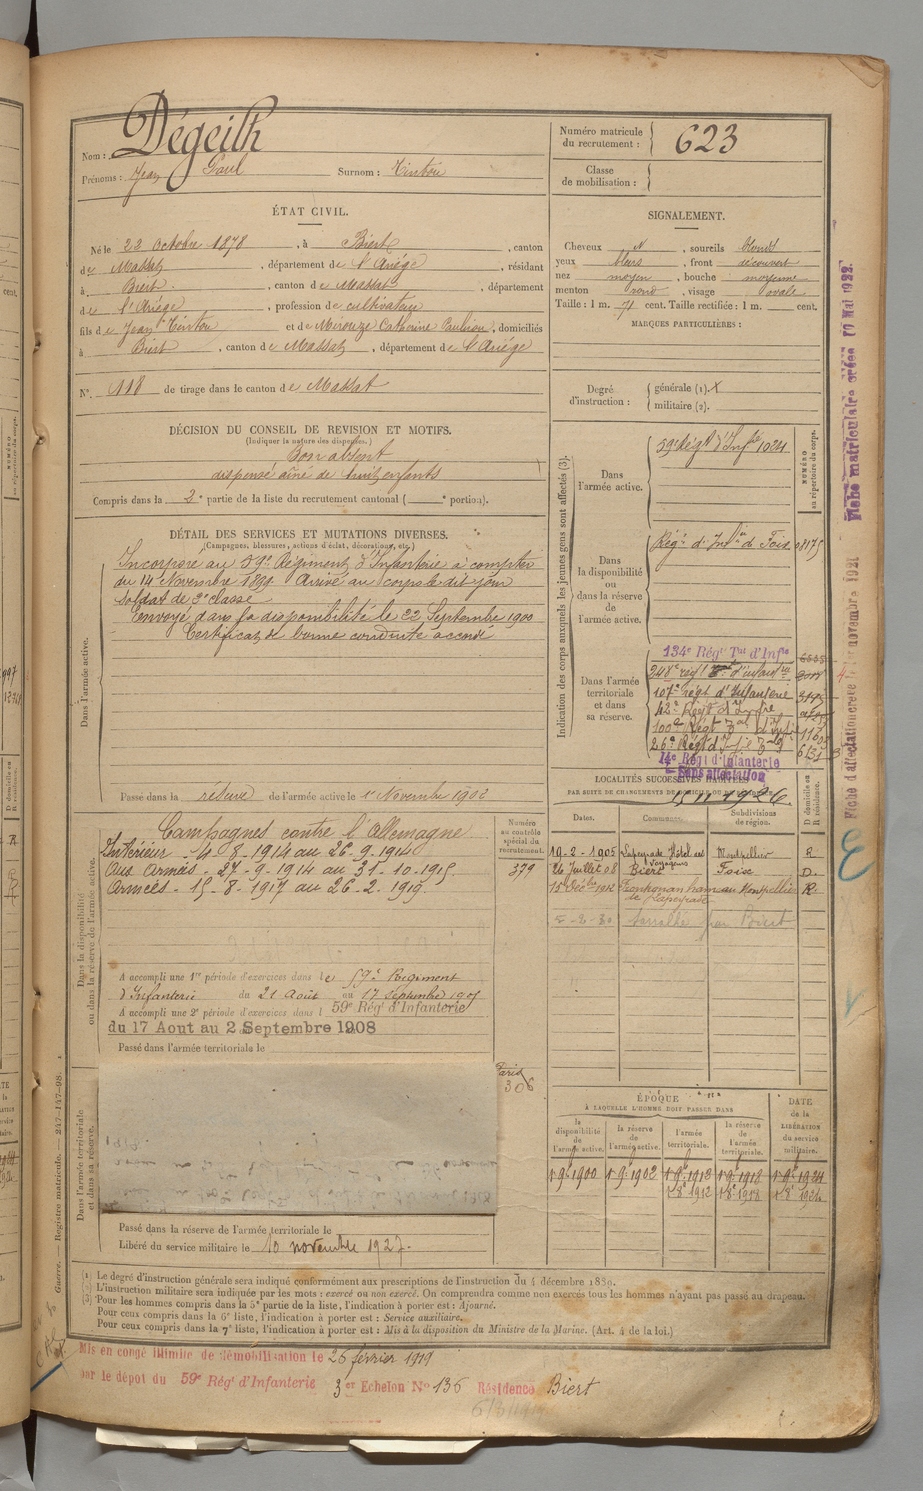 Nom : Dégeilh
Prénoms : Jean Paul Surnom : Tintou
ÉTAT CIVIL.
Né le 22 Octobre 1878, à Biert, canton
de Massat, département de l'Ariége, résidant
à Biert, canton de Massat, département
de l'Ariége, profession de cultivateur
fils de Jean Tintou et de Mirouze Catherine, domiciliés
à Biert, canton de Massat, département de l'Ariége
N°. 118 de tirage dans le canton de Massat
DÉCISION DU CONSEIL DE REVISION ET MOTIFS.
(Indiquer la nature des dispenses.)
Bon absent
dispensé aîné de huit enfants
Compris dans la 2e partie de la liste du recrutement cantonal ( e portion).
DÉTAIL DES SERVICES ET MUTATIONS DIVERSES.
(Campagnes, blessures, actions d'éclat, décorations, etc.)
Dans l'armée active.
Incorporé au 59e Régiment d'Infanterie à compter
du 14 Novembre 1899. Arrivé au corps le dit jour
soldat de 2e classe
Envoyé dans la disponibilité le 22 Septembre 1900
Certificat de bonne conduite accordé
Passé dans la réserve de l'armée active le 1er Novembre 1902
Dans la disponibilité
ou dans la réserve de l'armée active.
Campagnes contre l'Allemagne
Intérieur - 4-8-1914 au 26-9-1914
Aux Armées - 27-9-1914 au 31-10-1915
Armées - 15-8-1917 au 26-2-1919
Numéro
au contrôle
spécial du
recrutement.
379
A accompli une 1re période d'exercices dans le 59e Régiment
d'Infanterie du 21 Août au 17 Septembre 1905
A accompli une 2e période d'exercices dans l 59e Régt d'Infanterie
du 17 Aout au 2 Septembre 1908
Passé dans l'armée territoriale le
Paris
306
Dans l'armée territoriale
et dans sa réserve.
Passé dans la réserve de l'armée territoriale le
Libéré du service militaire le 10 novembre 1927.
Numéro matricule
du recrutement : 623
Classe
de mobilisation :
SIGNALEMENT.
Cheveux N, sourcils blonds
yeux bleus, front découvert
nez moyen, bouche moyenne
menton rond, visage ovale
Taille : 1 m. 71 cent. Taille rectifiée : 1 m. cent.
MARQUES PARTICULIÈRES :
Degré
d'instruction :
générale (1).
militaire (2).
Indication des corps auxquels les jeunes gens sont affectés (3).
NUMÉRO
au répertoire du corps.
Dans
l'armée active.
59e Régt d'Infrie 1024
Dans
la disponibilité
ou
dans la réserve
de
l'armée active.
Régt d'Infie de Foix 08175
Dans l'armée
territoriale
et dans
sa réserve.
134e Régt Tal d'Infie
248e régt d'infanie
107e Régt d'Infanterie
42e Régt d'Infie
100e Régt Tal d'Infie
26e Régt d'Infie Tale
14e Régt d'Infanterie
Sans affectation
LOCALITÉS SUCCESSIVES HABITÉES
PAR SUITE DE CHANGEMENTS DE DOMICILE OU DE RÉSIDENCE.
Dates. Communes. Subdivisions de région. D domicile ou R résidence.
19-2-1905 Lapeyrade Hôtel des Voyageurs Montpellier R
26 Juillet 08 Biert Foix D.
15 Décbre 1912 Montpellier R.
5-2-30 Biert
ÉPOQUE
À LAQUELLE L'HOMME DOIT PASSER DANS
la disponibilité de l'armée active.
la réserve de l'armée active.
l'armée territoriale.
la réserve de l'armée territoriale.
DATE de la LIBÉRATION du service militaire.
1er 9bre 1900 1er 9bre 1902 1er 9bre 1912 1er 9bre 1918 1er 9bre 1924
1er 8bre 1912 1er 8bre 1918 1er 8bre 1924
(1) Le degré d'instruction générale sera indiqué conformément aux prescriptions de l'instruction du 4 décembre 1889.
(2) L'instruction militaire sera indiquée par les mots : exercé ou non exercé. On comprendra comme non exercés tous les hommes n'ayant pas passé au drapeau.
(3) Pour les hommes compris dans la 5e partie de la liste, l'indication à porter est : Ajourné.
Pour ceux compris dans la 6e liste, l'indication à porter est : Service auxiliaire.
Pour ceux compris dans la 7e liste, l'indication à porter est : Mis à la disposition du Ministre de la Marine. (Art. 4 de la loi.)
Mis en congé illimité de démobilisation le 26 février 1919
par le dépot du 59e Régt d'Infanterie 3er Echelon No 136 Résidence Biert
Guerre. — Registre matricule. — 247-147-98.
Fiche matriculaire créée 10 Mai 1922.
novembre 1921